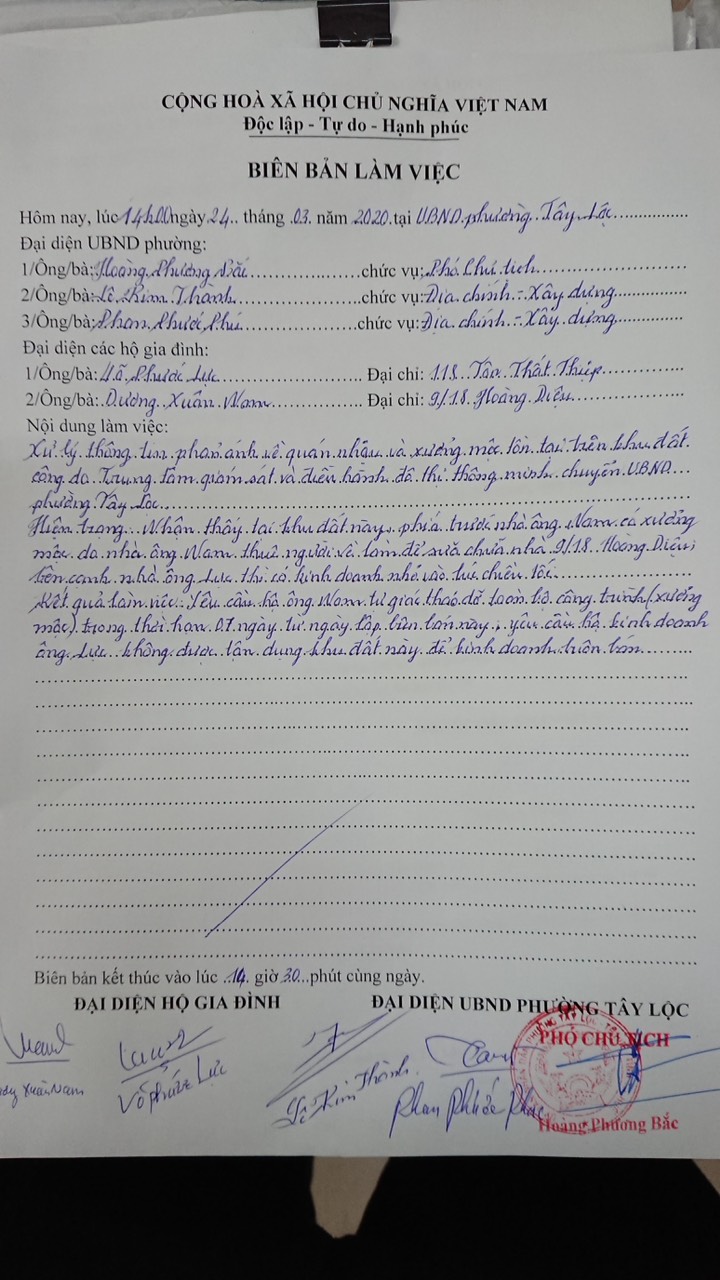 CỘNG HOÀ XÃ HỘI CHỦ NGHĨA VIỆT NAM
Độc lập - Tự do - Hạnh phúc
BIÊN BẢN LÀM VIỆC
Hôm nay, lúc 14h00 ngày 24.. tháng .03. năm 2020 tại UBND phường Tây Lộc
Đại diện UBND phường:
1/Ông/bà: Hoàng Phương Bắc chức vụ: Phó Chủ tịch
2/Ông/bà: Lê Kim Thành chức vụ: Địa chính - Xây dựng
3/Ông/bà: Phan Phước Phú chức vụ: Địa chính - Xây dựng
Đại diện các hộ gia đình:
1/Ông/bà: Võ Phước Lực Địa chỉ: 118 Tôn Thất Thiệp
2/Ông/bà: Dương Xuân Nam Địa chỉ: 9/18 Hoàng Diệu
Nội dung làm việc:
Xử lý thông tin phản ánh về quán nhậu và xưởng mộc tồn tại trên khu đất
công do Trung tâm giám sát và điều hành đô thị thông minh chuyển UBND
phường Tây Lộc
Hiện trạng: Nhận thấy tại khu đất này, phía trước nhà ông Nam có xưởng
mộc do nhà ông Nam thuê người về làm để sửa chữa nhà 9/18 Hoàng Diệu,
bên cạnh nhà ông Lực thì có kinh doanh nhỏ vào lúc chiều tối.
Kết quả làm việc: Yêu cầu hộ ông Nam tự giác tháo dỡ toàn bộ công trình (xưởng
mộc) trong thời hạn 07 ngày từ ngày lập biên bản này; yêu cầu hộ kinh doanh
ông Lực không được tận dụng khu đất này để kinh doanh buôn bán
Biên bản kết thúc vào lúc ..14. giờ 30...phút cùng ngày.
ĐẠI DIỆN HỘ GIA ĐÌNH ĐẠI DIỆN UBND PHƯỜNG TÂY LỘC
PHÓ CHỦ TỊCH
Xuân Nam Võ Phước Lực Lê Kim Thành Phan Phước
Hoàng Phương Bắc